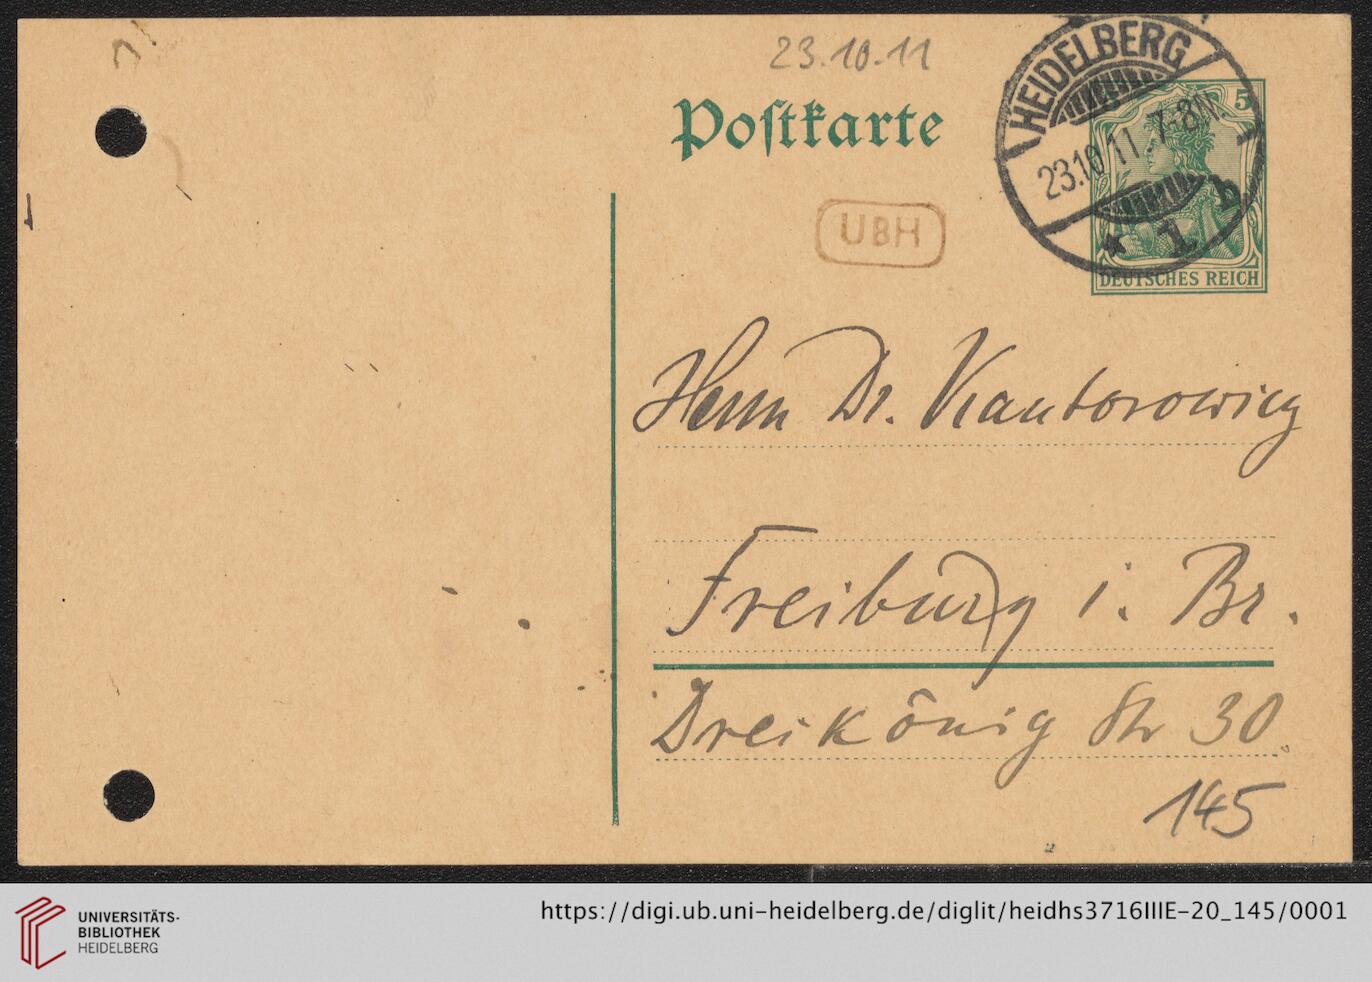 23.10.11
Postkarte
HEIDELBERG
23.10.11.7-8N.
* 1. b
5
DEUTSCHES REICH
UBH
Herrn Dr. Kantorowicz
Freiburg i. Br.
Dreikönig Str 30
145
UNIVERSITÄTS-
BIBLIOTHEK
HEIDELBERG
https://digi.ub.uni-heidelberg.de/diglit/heidhs3716IIIE-20_145/0001